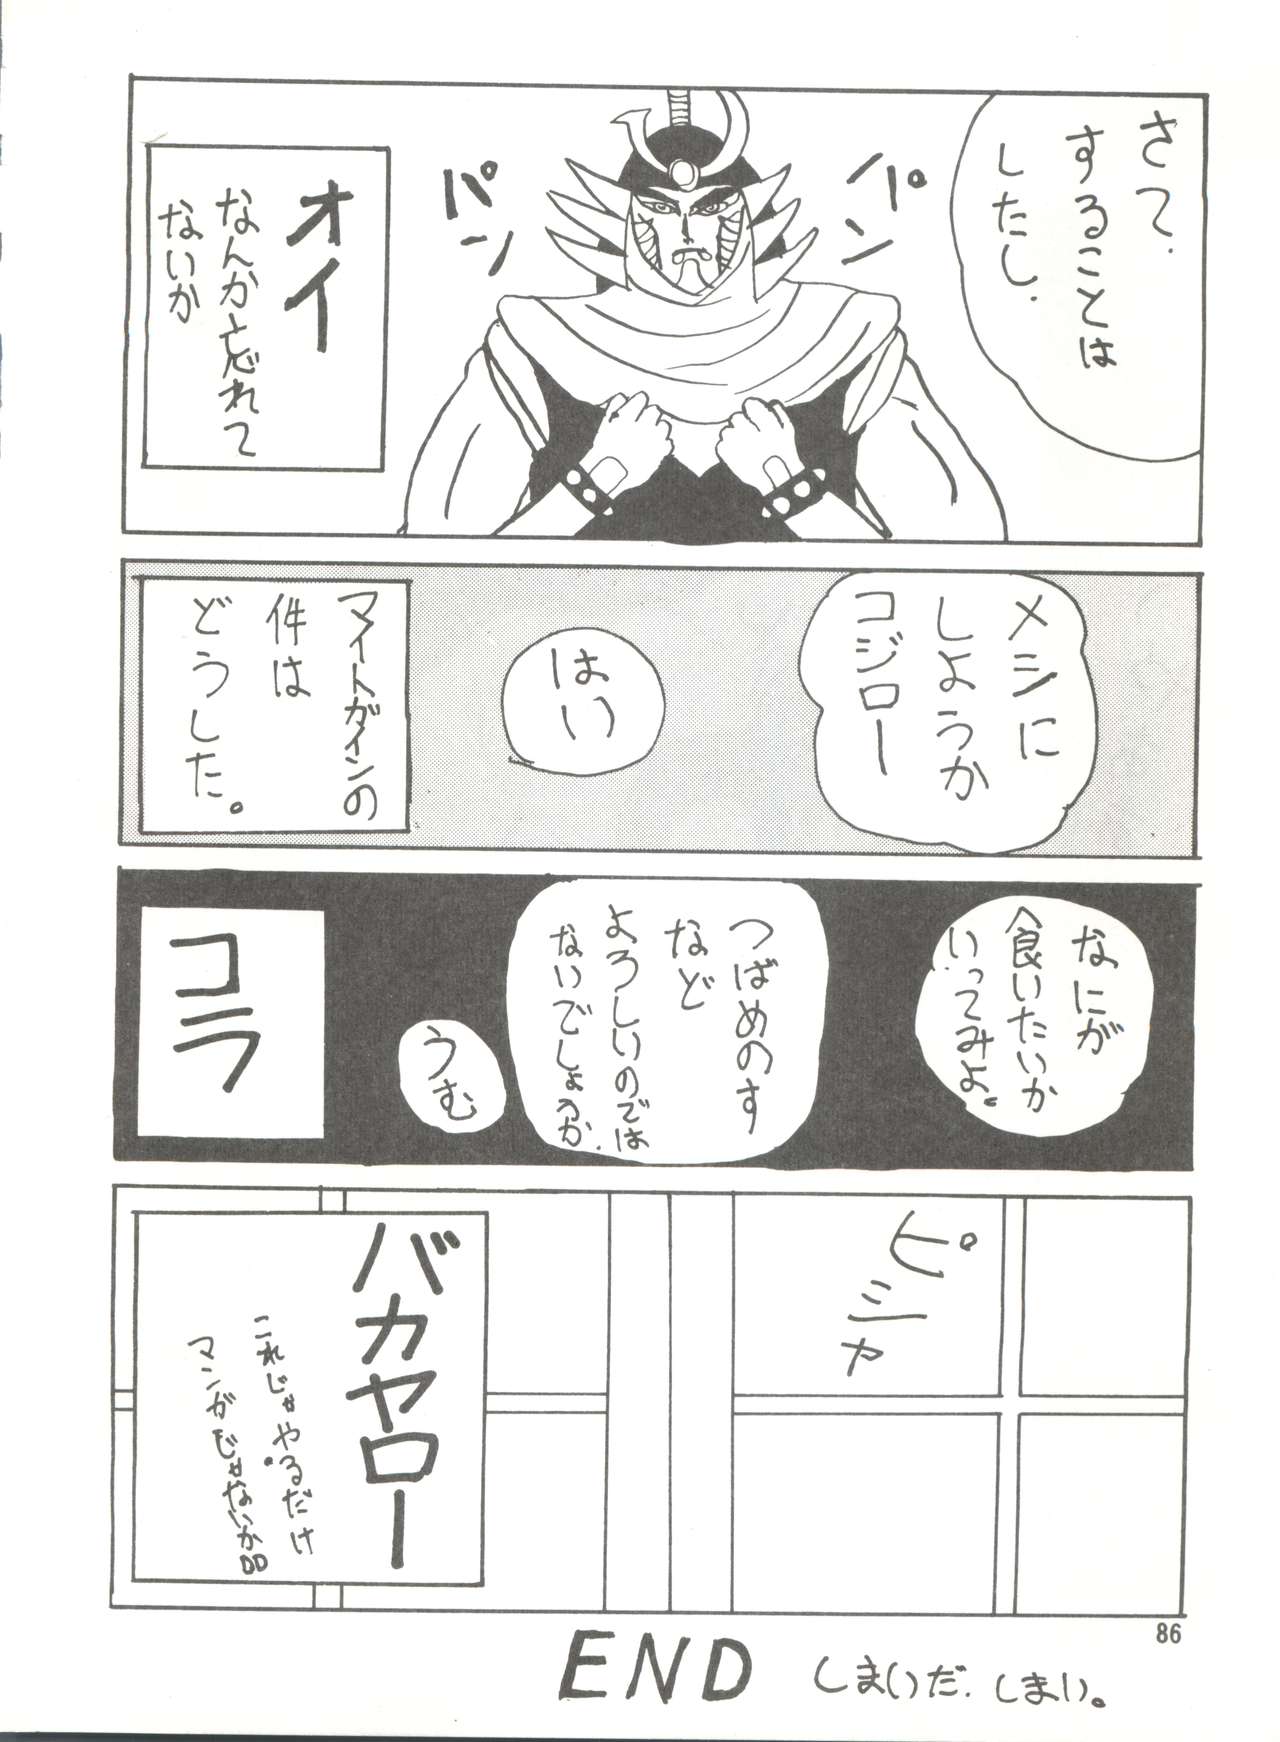 さて.
することは
したし.
パン
パン
オイ
なんか忘れて
ないか
メシに
しようか
コジロー
はい
マイトガインの
件は
どうした。
なにが
食いたいか
いってみよ。
つばめのす
など
よろしいのでは
ないでしょうか.
うむ
コラ
ピシャ
バカヤロー
これじゃやるだけ
マンガじゃないか
86
END
しまいだ.しまい。